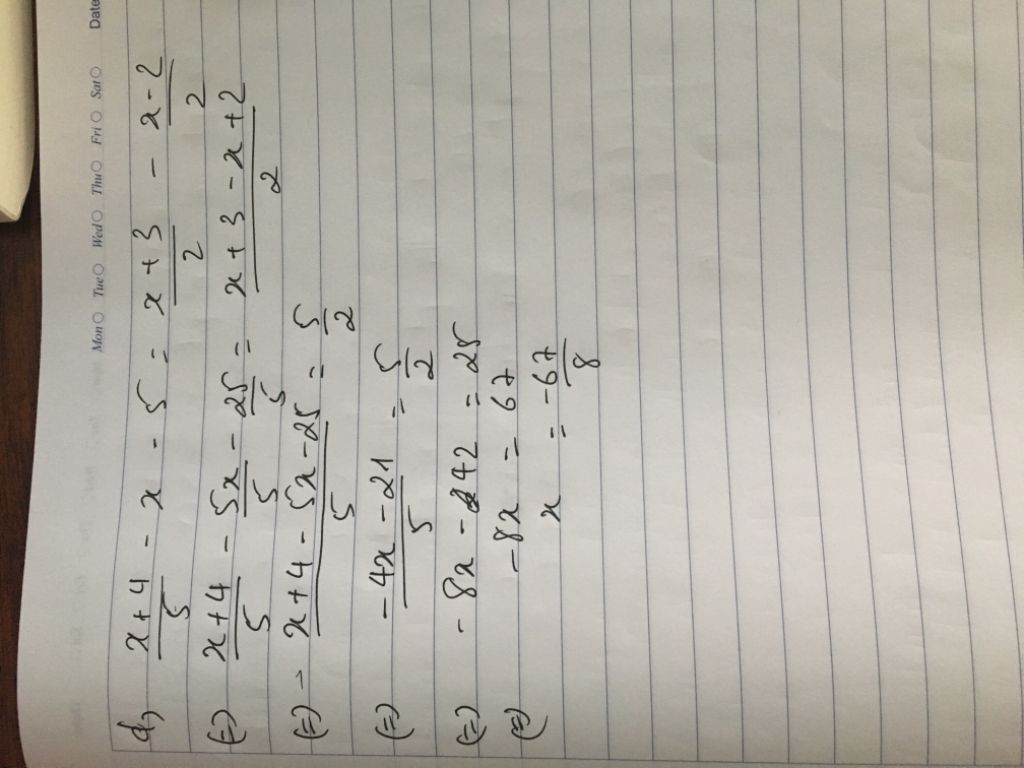 Mon Tue Wed Thu Fri Sat Date
d, (x+4)/5 - x - 5 = (x+3)/2 - (x-2)/2
(=) (x+4)/5 - 5x/5 - 25/5 = (x+3-x+2)/2
(=) - (x+4-5x-25)/5 = 5/2
(=) (-4x-21)/5 = 5/2
(=) -8x - 42 = 25
(=) -8x = 67
x = -67/8